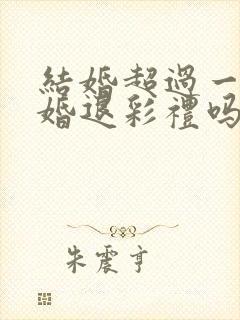 結婚超過一
婚退彩禮嗎
朱震亨